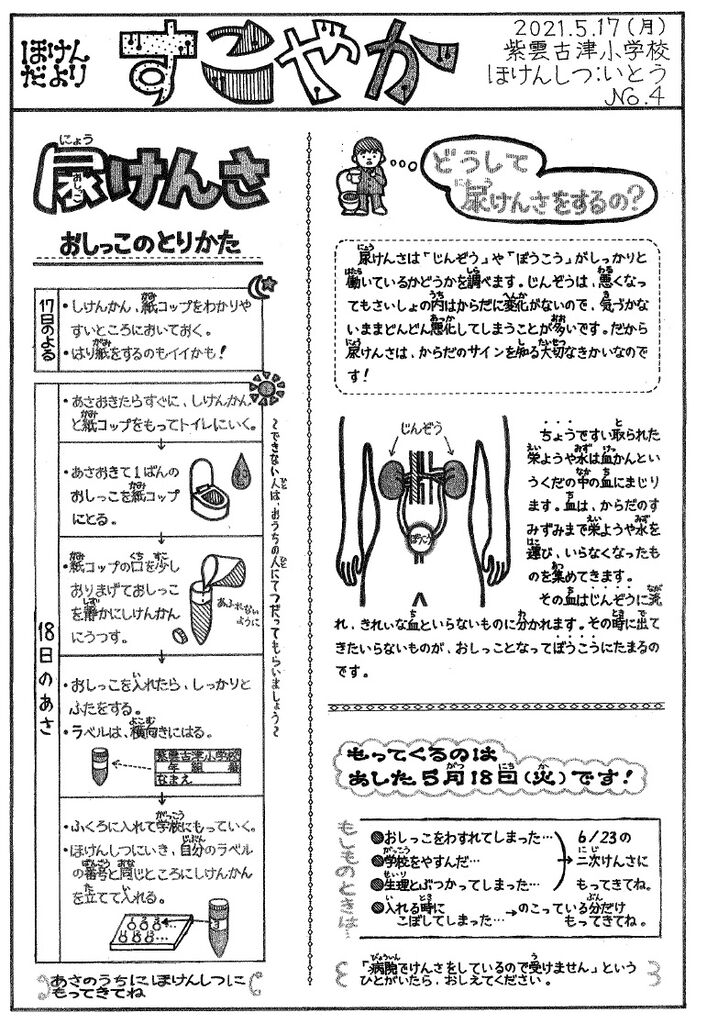 ほけん
だより
すこやか
2021.5.17(月)
紫雲古津小学校
ほけんしつ:いとう
No.4
尿けんさ
にょう
おしっこ
おしっこのとりかた
17日のよる
・しけんかん、紙コップをわかりや
すいところにおいておく。
・はり紙をするのもイイかも!
18日のあさ
・あさおきたらすぐに、しけんかん
と紙コップをもってトイレにいく。
・あさおきて1ばんの
おしっこを紙コップ
にとる。
・紙コップの口を少し
おりまげておしっこ
を静かにしけんかん
にうつす。
あふれない
ように
・おしっこを入れたら、しっかりと
ふたをする。
・ラベルは、横向きにはる。
紫雲古津小学校
年 組 番
なまえ
・ふくろに入れて学校にもっていく。
・ほけんしつにいき、自分のラベル
の番号と同じところにしけんかん
を立てて入れる。
1 2 3 4…
3
~できない人は、おうちの人にてつだってもらいましょう~
あさのうちにほけんしつに
もってきてね
どうして
尿けんさをするの?
尿けんさは「じんぞう」や「ぼうこう」がしっかりと
働いているかどうかを調べます。じんぞうは、悪くなっ
てもさいしょの内はからだに変化がないので、気づかな
いままどんどん悪化してしまうことが多いです。だから
尿けんさは、からだのサインを知る大切なきかいなので
す!
じんぞう
ぼうこう
ちょうですい取られた
栄ようや水は血かんとい
うくだの中の血にまじり
ます。血は、からだのす
みずみまで栄ようや水を
運び、いらなくなったも
のを集めてきます。
その血はじんぞうに流
れ、きれいな血といらないものに分かれます。その時に出て
きたいらないものが、おしっことなってぼうこうにたまるの
です。
もってくるのは
あした5月18日(火)です!
もしものときは…
●おしっこをわすれてしまった…
●学校をやすんだ…
●生理とぶつかってしまった…
6/23の
→二次けんさに
もってきてね。
●入れる時に
こぼしてしまった…
→のこっている分だけ
もってきてね。
「病院でけんさをしているので受けません」という
ひとがいたら、おしえてください。